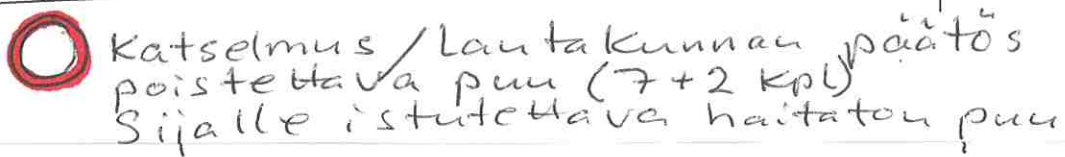 Katselmus/Lautakunnan päätös
poistettava puu (7+2 kpl)
Sijalle istutettava haitaton puu